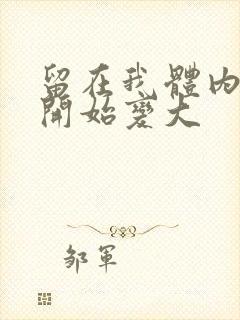 留在我體內
開始變大
邹軍